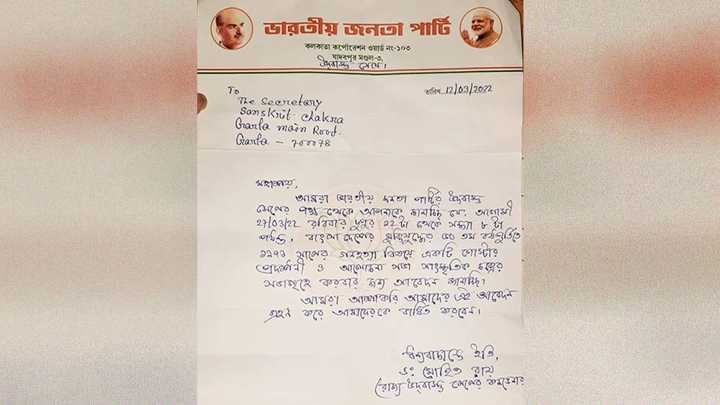 ভারতীয় জনতা পার্টি
কলকাতা কর্পোরেশন ওয়ার্ড নং-১০৩
যাদবপুর মণ্ডল-৩,
উদ্বাস্তু সেল।
To
তারিখ 12/03/2022
The Secretary
Sanskrit Chakra
Garfa main Road.
Garfa - 700078
মহাশয়,
আমরা ভারতীয় জনতা পার্টির উদ্বাস্তু
সেলের পক্ষ থেকে আপনাকে জানাচ্ছি যে, আগামী
২৭/০৩/২২ রবিবার দুপুর ১২ টা থেকে সন্ধ্যা ৮ টা
পর্যন্ত, বাংলাদেশের মুক্তিযুদ্ধের ৫০ তম বর্ষপূর্তিতে
১৯৭১ সালের গণহত্যা বিষয়ে একটি পোস্টার
প্রদর্শনী ও আলোচনা সভা সাংস্কৃতিক চক্রের
সভাগৃহে করবার জন্য আবেদন জানাচ্ছি।
আমরা আশাকরি আমাদের এই আবেদন
গ্রহন করে আমাদেরকে বাধিত করবেন।
ধন্যবাদান্তে ইতি,
ডঃ মোহিত রায়
(রাজ্য উদ্বাস্তু সেলের কনভেনার